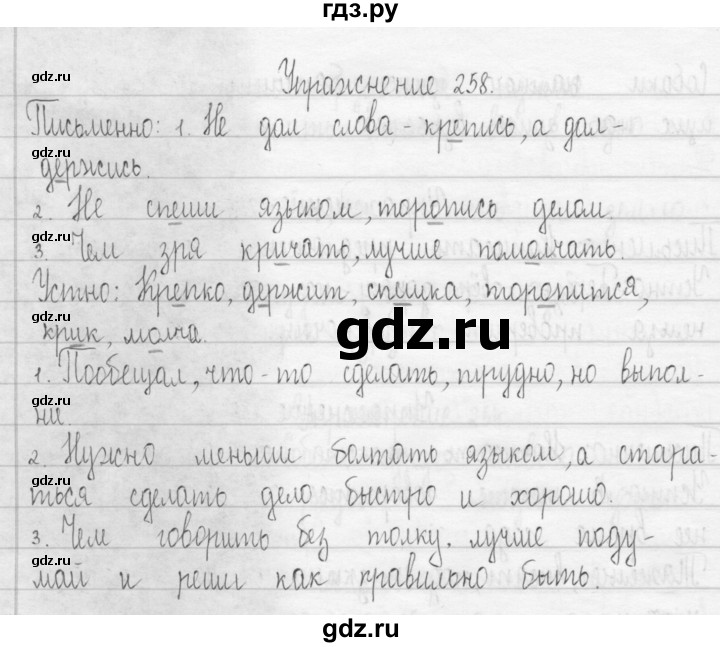 гдз.ру
Упражнение 258.
gdz.ru
Письменно: 1. Не дал слова - крепись, а дал-
держись.
gdz.ru
2. Не спеши языком, торопись делом
gdz.ru
3. Чем зря кричать, лучше помолчать.
Устно: Крепко, держит, спешка, торопится,
gdz.ru
крик, молча.
gdz.ru
1. Пообещал, что-то сделать, трудно, но выпол-
gdz.ru
ни.
2. Нужно меньши болтать языком, а стара-
gdz.ru
ться сделать дело быстро и хорошо.
3. Чем говорить без толку. лучше поду-
gdz.ru
май и реши как правильно быть.
gdz.ru